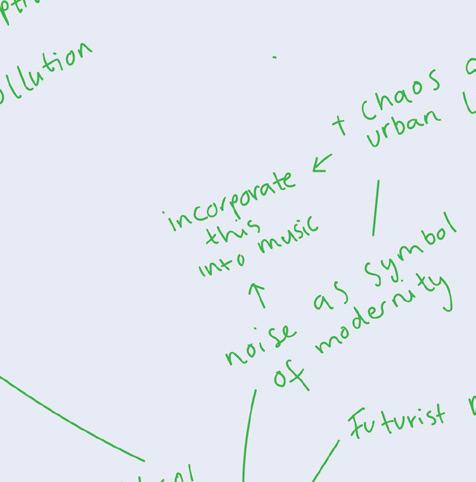 + Chaos
urban
incorporate
this
into music
noise as symbol
of modernity
Futurist